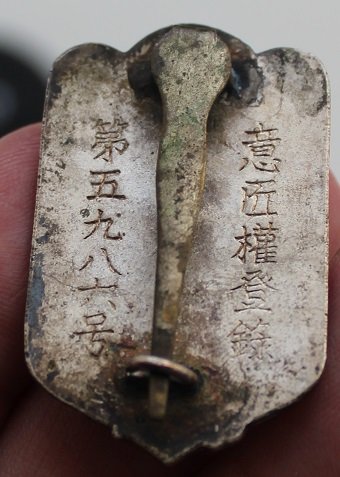 意匠權登錄
第五九八六号